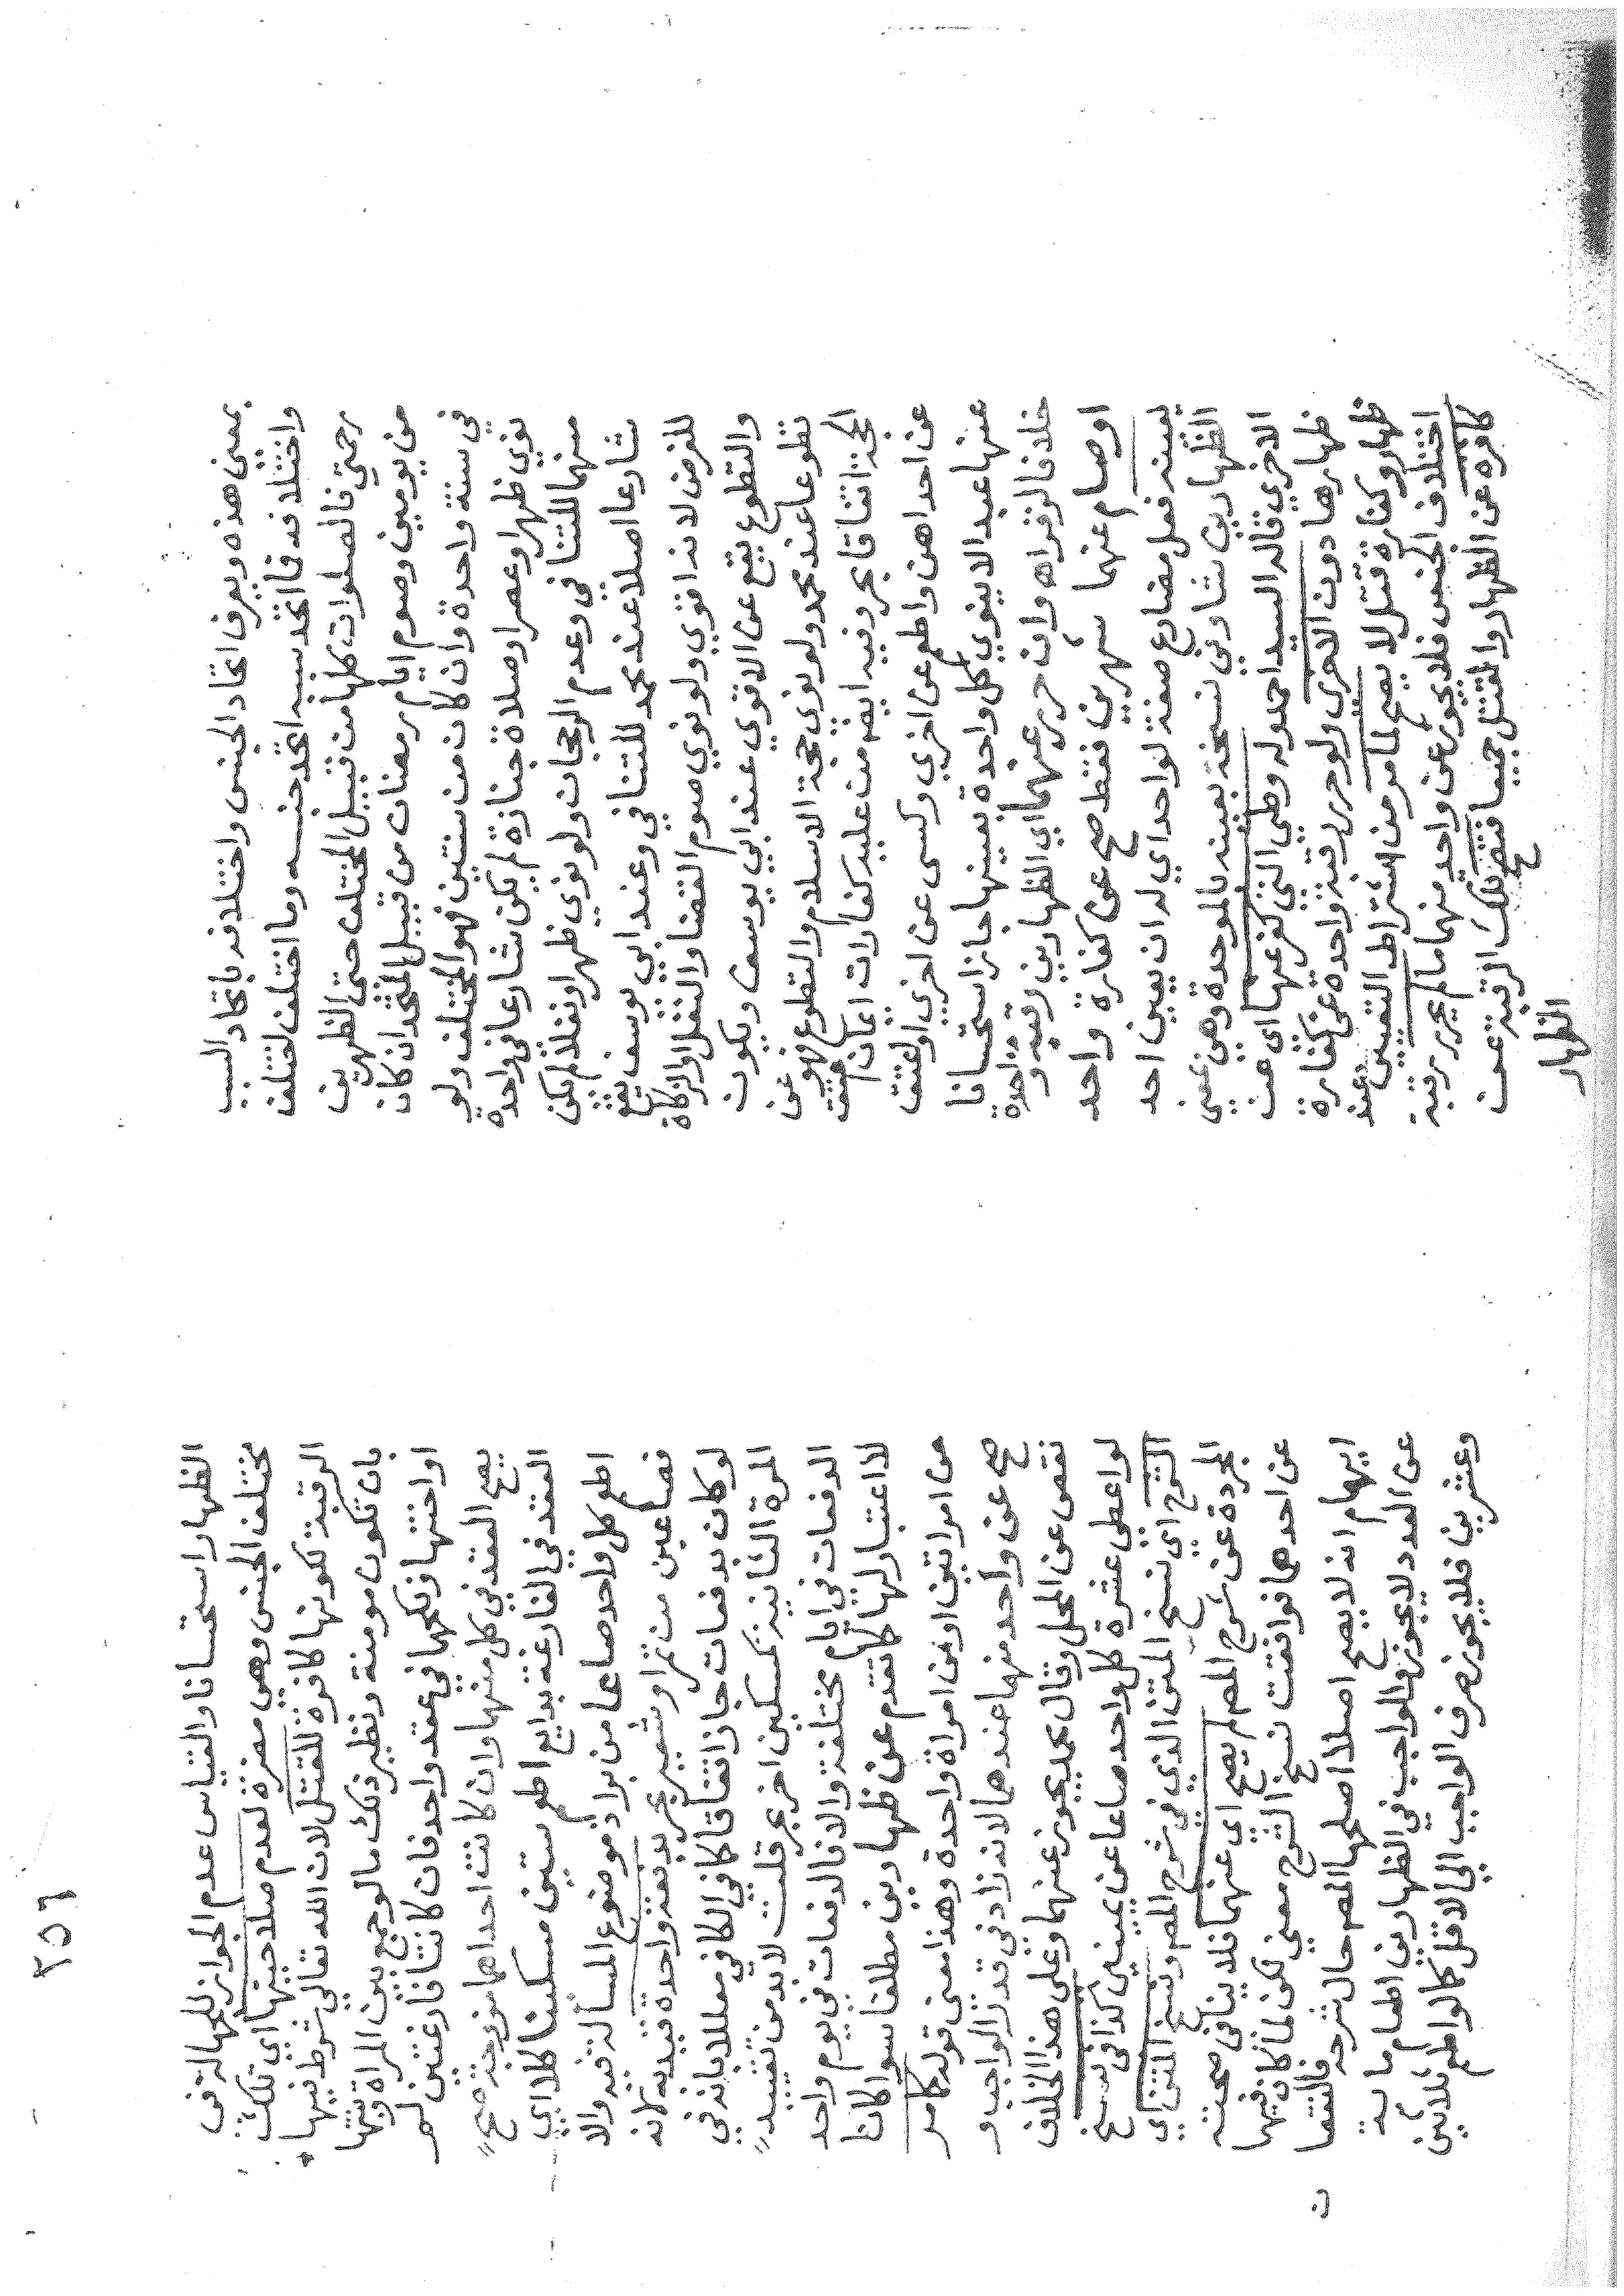 بمعنى هذه ويعرف اتحاد الجنس واختلافه باتحاد السبب
واختلافه فما اتحد سببه اتحد جنسه وما اختلف اختلف
رحمتي فالصلوات كلها من قبيل المختلف حتى الظهرين
من يومين وصوم ايام رمضان من قبيل المتحد ان كان
في سنة واحدة وان كان من سنتين فهو المختلف ولو
نوى ظهرا وعصرا وصلاة جنازة لم يكن شارعا في واحدة
منهما للتنافي وعدم الرجحان ولو نوى ظهرا ونفلا لم يكن
شارعا اصلا عند محمد للتنافي وعند ابي يوسف يقع
للفرض لانه اقوى ولو نوى صوم القضا والنفل او الزكاة
والتطوع يقع عن الاقوى عند ابي يوسف ويكون
تطوعا عند محمد ولو نوى حجة الاسلام والتطوع فهو عن
الحجة اتفاقا بحر وفيه ايضا من عليه كفارات ايمان اعتق
عن احداهن واطعم عن اخرى وكسى عن اخرى او اعتق
عنها عبدا لا ينوي كل واحدة بعينها جاز استحسانا
خلافا لزفر اه وان حرر عنهما اي الظهارين رقبة واحدة
او صام عنهما شهرين فقط صح عن كفارة واحد
يعينه فعل مضارع صفة لواحد اي له ان يعين احد
الظهارين شا وفي نسخة بعينه بالموحدة وهي بمعنى
الاخرى قاله السيد احمد وله وطي التي كفر عنها اي عن
ظهارها دون الاخرى ولو حرر رقبة واحدة عن كفارة
ظهار وكفارة قتل لا يصح لما مر من اشتراط التعيين عند
اختلاف الجنس فلا يجوز عن واحد منهما ما لم يحرر رقبة
كافرة عن الظهار والقتل جميعا فتصح تلك الرقبة عن
الظهار
٢٥٦
الظهار استحسانا والقياس عدم الجواز للجهالة في
مختلف الجنس وهي مضرة لعدم صلاحيتها اي تلك
الرقبة لكونها كافرة للقتل لان الله تعالى شرط فيها
بان تكون مومنة ونظير ذلك ما لو جمع بين المراة وبنتها
او اختها ونكحها في عقد واحد فان كانتا فارغتين لم
يصح العقد في كل منهما وان كانت احداهما مزوجة صح
العقد في الفارغة بدايع اطعم ستين مسكينا كلا اي
اطعم كل واحد صاعا من بر اذ موضوع المسألة فيه والا
فصاعين من تمر او شعير بحر بدفعة واحدة قيد به لانه
لو كان بدفعات جاز اتفاقا كما في الكافي معللا بانه في
المرة الثانية كمسكين اخر بحر قلت لا بد من تقييد
الدفعات في ايام مختلفة والا فالدفعات في يوم واحد
لا اعتبار لها كما تقدم عن ظهارين مطلقا سوا كانا
من امراتين او من امراة واحدة وهذا معنى قوله كما مر
صح عن واحد منهما عندهما لانه زاد في قدر الواجب و
نقص عن المحل وقال محمد يجوز عنهما وعلى هذا الخلاف
لو اعطى عشرة كل واحد صاعا عن يمينين كذا في نسخ
الشرح اي نسخ المتن الذي في شرح المص ونسخ المتن اي
المجردة عن شرح المص لم يصح اي عنهما فلا ينافي صحته
عن احدهما فوافقت نسخ الشرح معنى لكن لما كان فيها
ايهام انه لا يصح اصلا اصلحها المص حال شرحه فالنقصا
عن العدد لا يجوز والواجب في الظهارين اطعام ماية
وعشرين فلا يجوز صرف الواجب الى الاقل كما لو اطعم ثلاثين